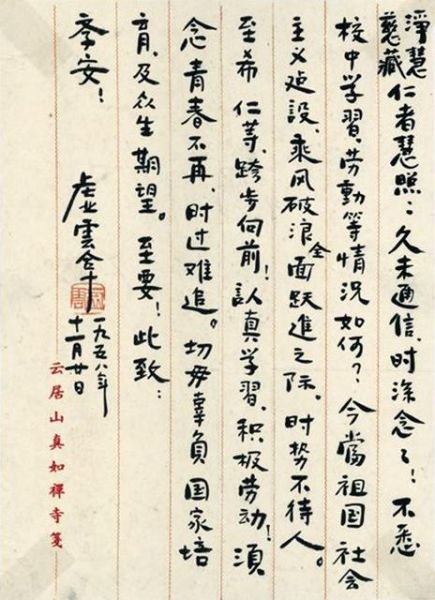 淨慧
慈藏仁者慧照：久未通信，时深念々！不悉
校中学習、劳動等情况如何？今當祖囯社会
主义建設，乘风破浪全面跃進之际，时势不待人。
至希 仁等，跨步向前！认真学習，积极劳动！須
念青春不再，时过难追。切毋辜負国家培
育，及众生期望。至要！此致：
季安！
虚雲合十
一九五八年
十一月廿日
云居山真如禪寺箋